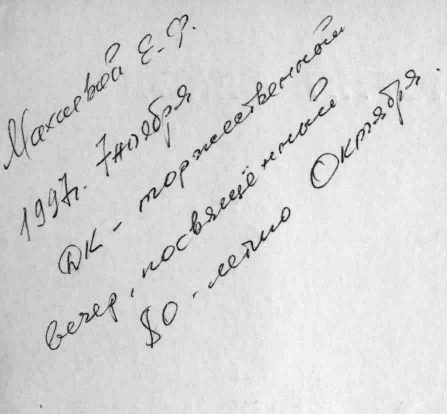 Махаевой Е.Ф.
1997г. 7 ноября
ДК - торжественный
вечер, посвящённый
80-летию Октября.